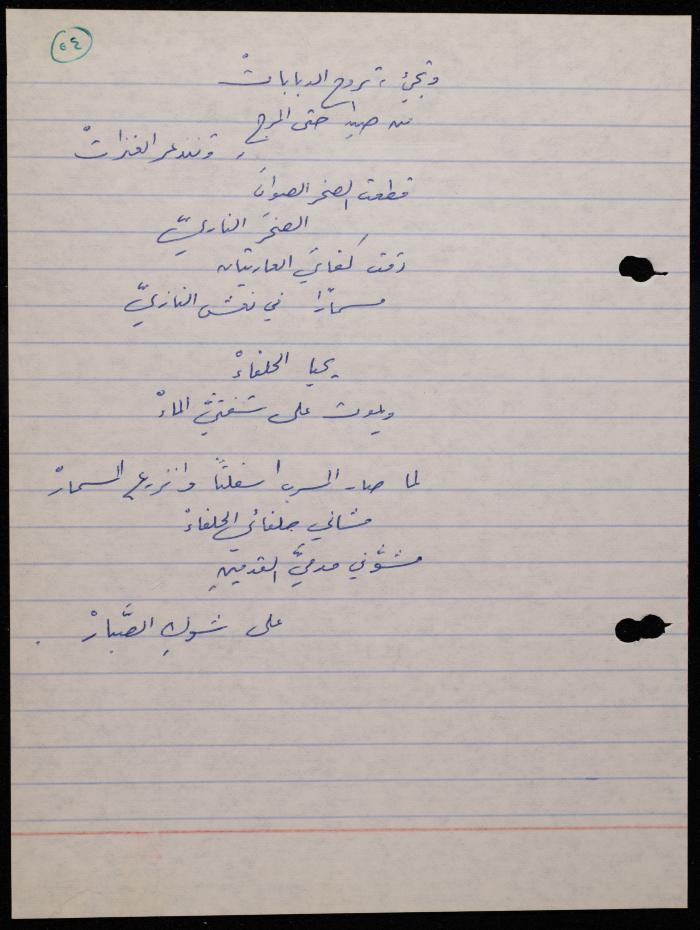 ٥٤
وتجيء ، تروح الدباباتْ
من صيدا حتى المرج
وتندعر العنزاتْ
قطعت الصخر الصوان
الصخرَ الناريّ
دقت كفايَ العاريتان
مسمارًا في نعش النازيّ
يحيا الحلفاءْ
ويموت على شفتيَّ الماءْ
لما صار السرب اسفلتًا وانزرع المسمارْ
مشاني حلفائي الحلفاءْ
مشّوني مدميَّ القدمينِ
على شوكِ الصَّبارْ .